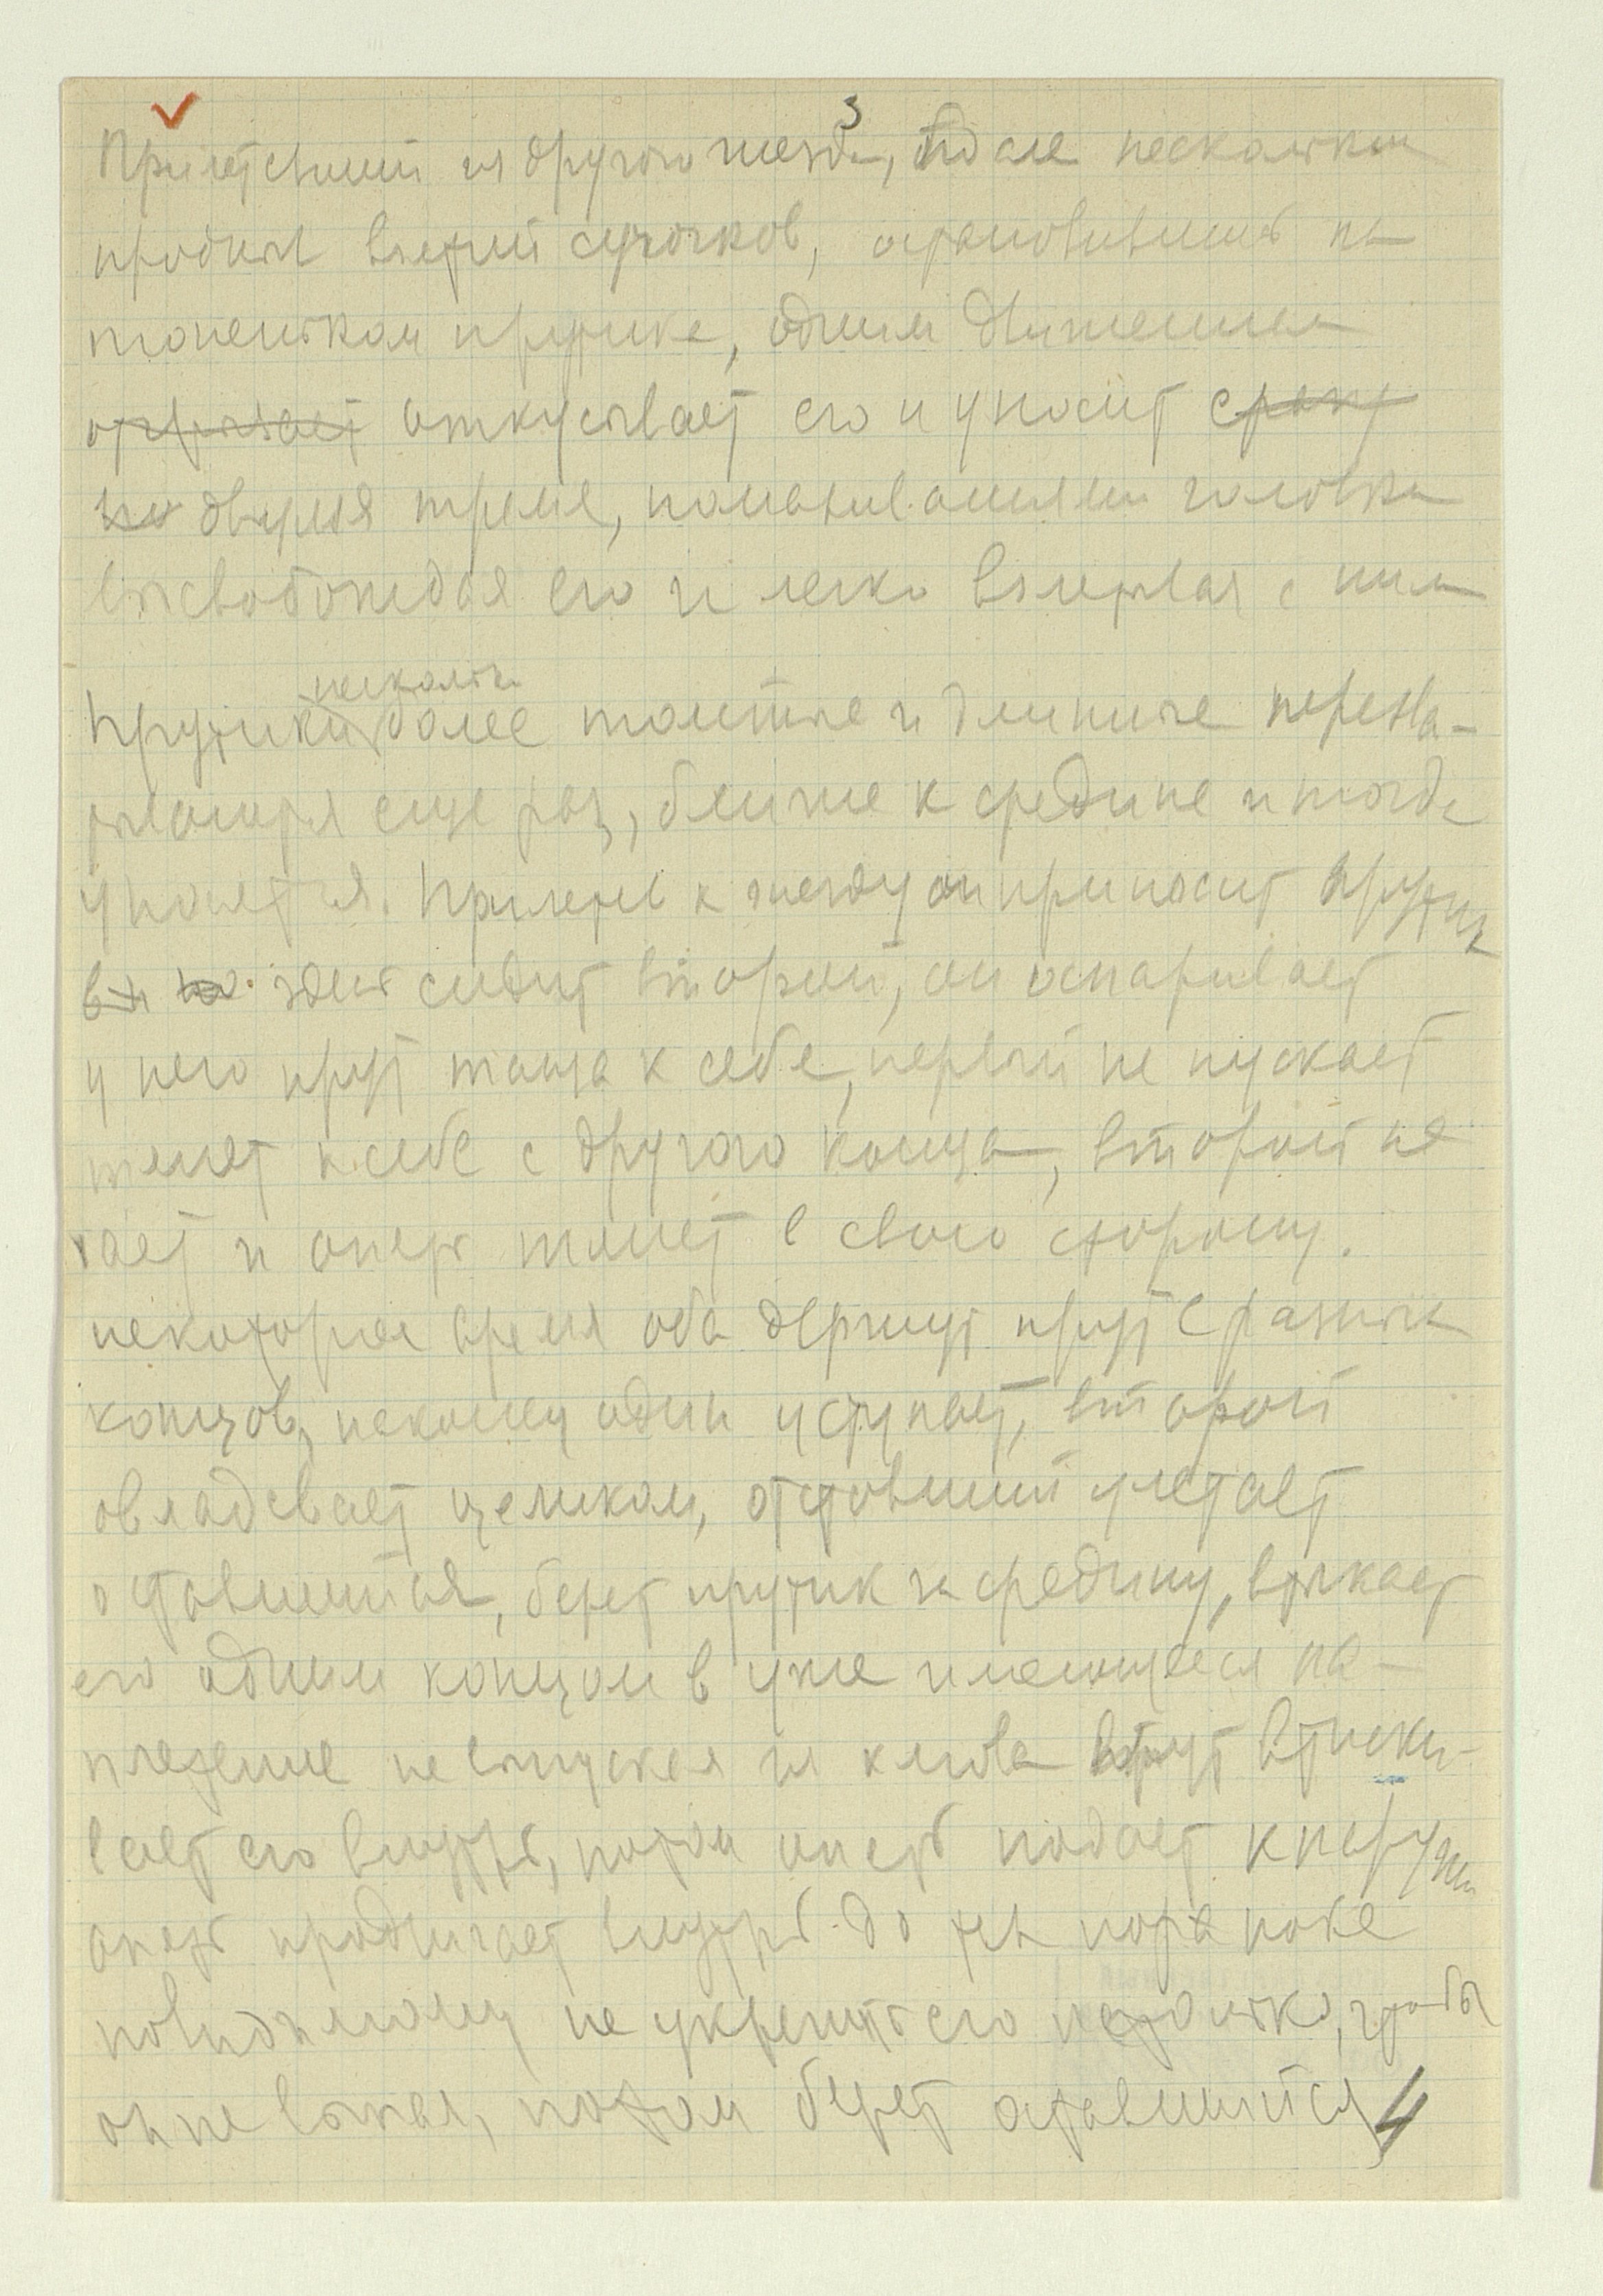 3
Прилетевший из другого гнезда, после нескольких
пробных взятий сучочков, остановившись на
тоненьком прутике, одним движением
отгрызает откусывает его и уносит сразу
двумя тремя, помахиваниями головки
высвобождая его и легко взлетая с ним
несколько
Прутики более толстые и длинные перехва-
тываются еще раз, ближе к средине и тогда
уносятся. Прилетев к гнезду он приносит прутик
здесь сидит второй, он оспаривает
у него прут таща к себе, первый не пускает
тянет к себе с другого конца, второй не
и опять тянет в свою сторону.
некоторое время оба держут прут с разных
концов, наконец один уступает, второй
овладевает целиком, отставший улетает
оставшийся, берет прутик за средину, втыкает
его одним концом в уже имеющееся на-
плетение не выпуская из клюва втиски-
вает его внутрь, потом опять подает кнаружи
опять продвигает внутрь до тех пор пока
повидимому не укрепит его настолько, чтобы
он не выпал, потом берет оставшийся
4